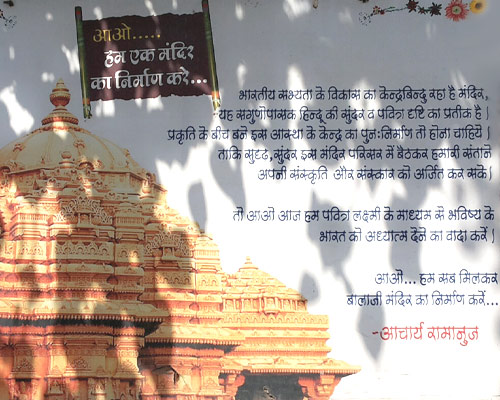 आओ.....
हम एक मंदिर
का निर्माण करे...
भारतीय सभ्यता के विकास का केन्द्रबिन्दु रहा है मंदिर,
यह सगुणोपासक हिन्दू की सुंदर व पवित्रा दृष्टि का प्रतीक है।
प्रकृति के बीच बने इस आस्था के केन्द्र का पुनःनिर्माण तो होना चाहिये।
ताकि सुदृढ़, सुंदर इस मंदिर परिसर में बैठकर हमारी संताने
अपनी संस्कृति और संस्कार को अर्जित कर सके।
तो आओ आज हम पवित्रा लक्ष्मी के माध्यम से भविष्य के
भारत को अध्यात्म देने का वादा करें।
आओ... हम सब मिलकर
बालाजी मंदिर का निर्माण करें...
-आचार्य रामानुज